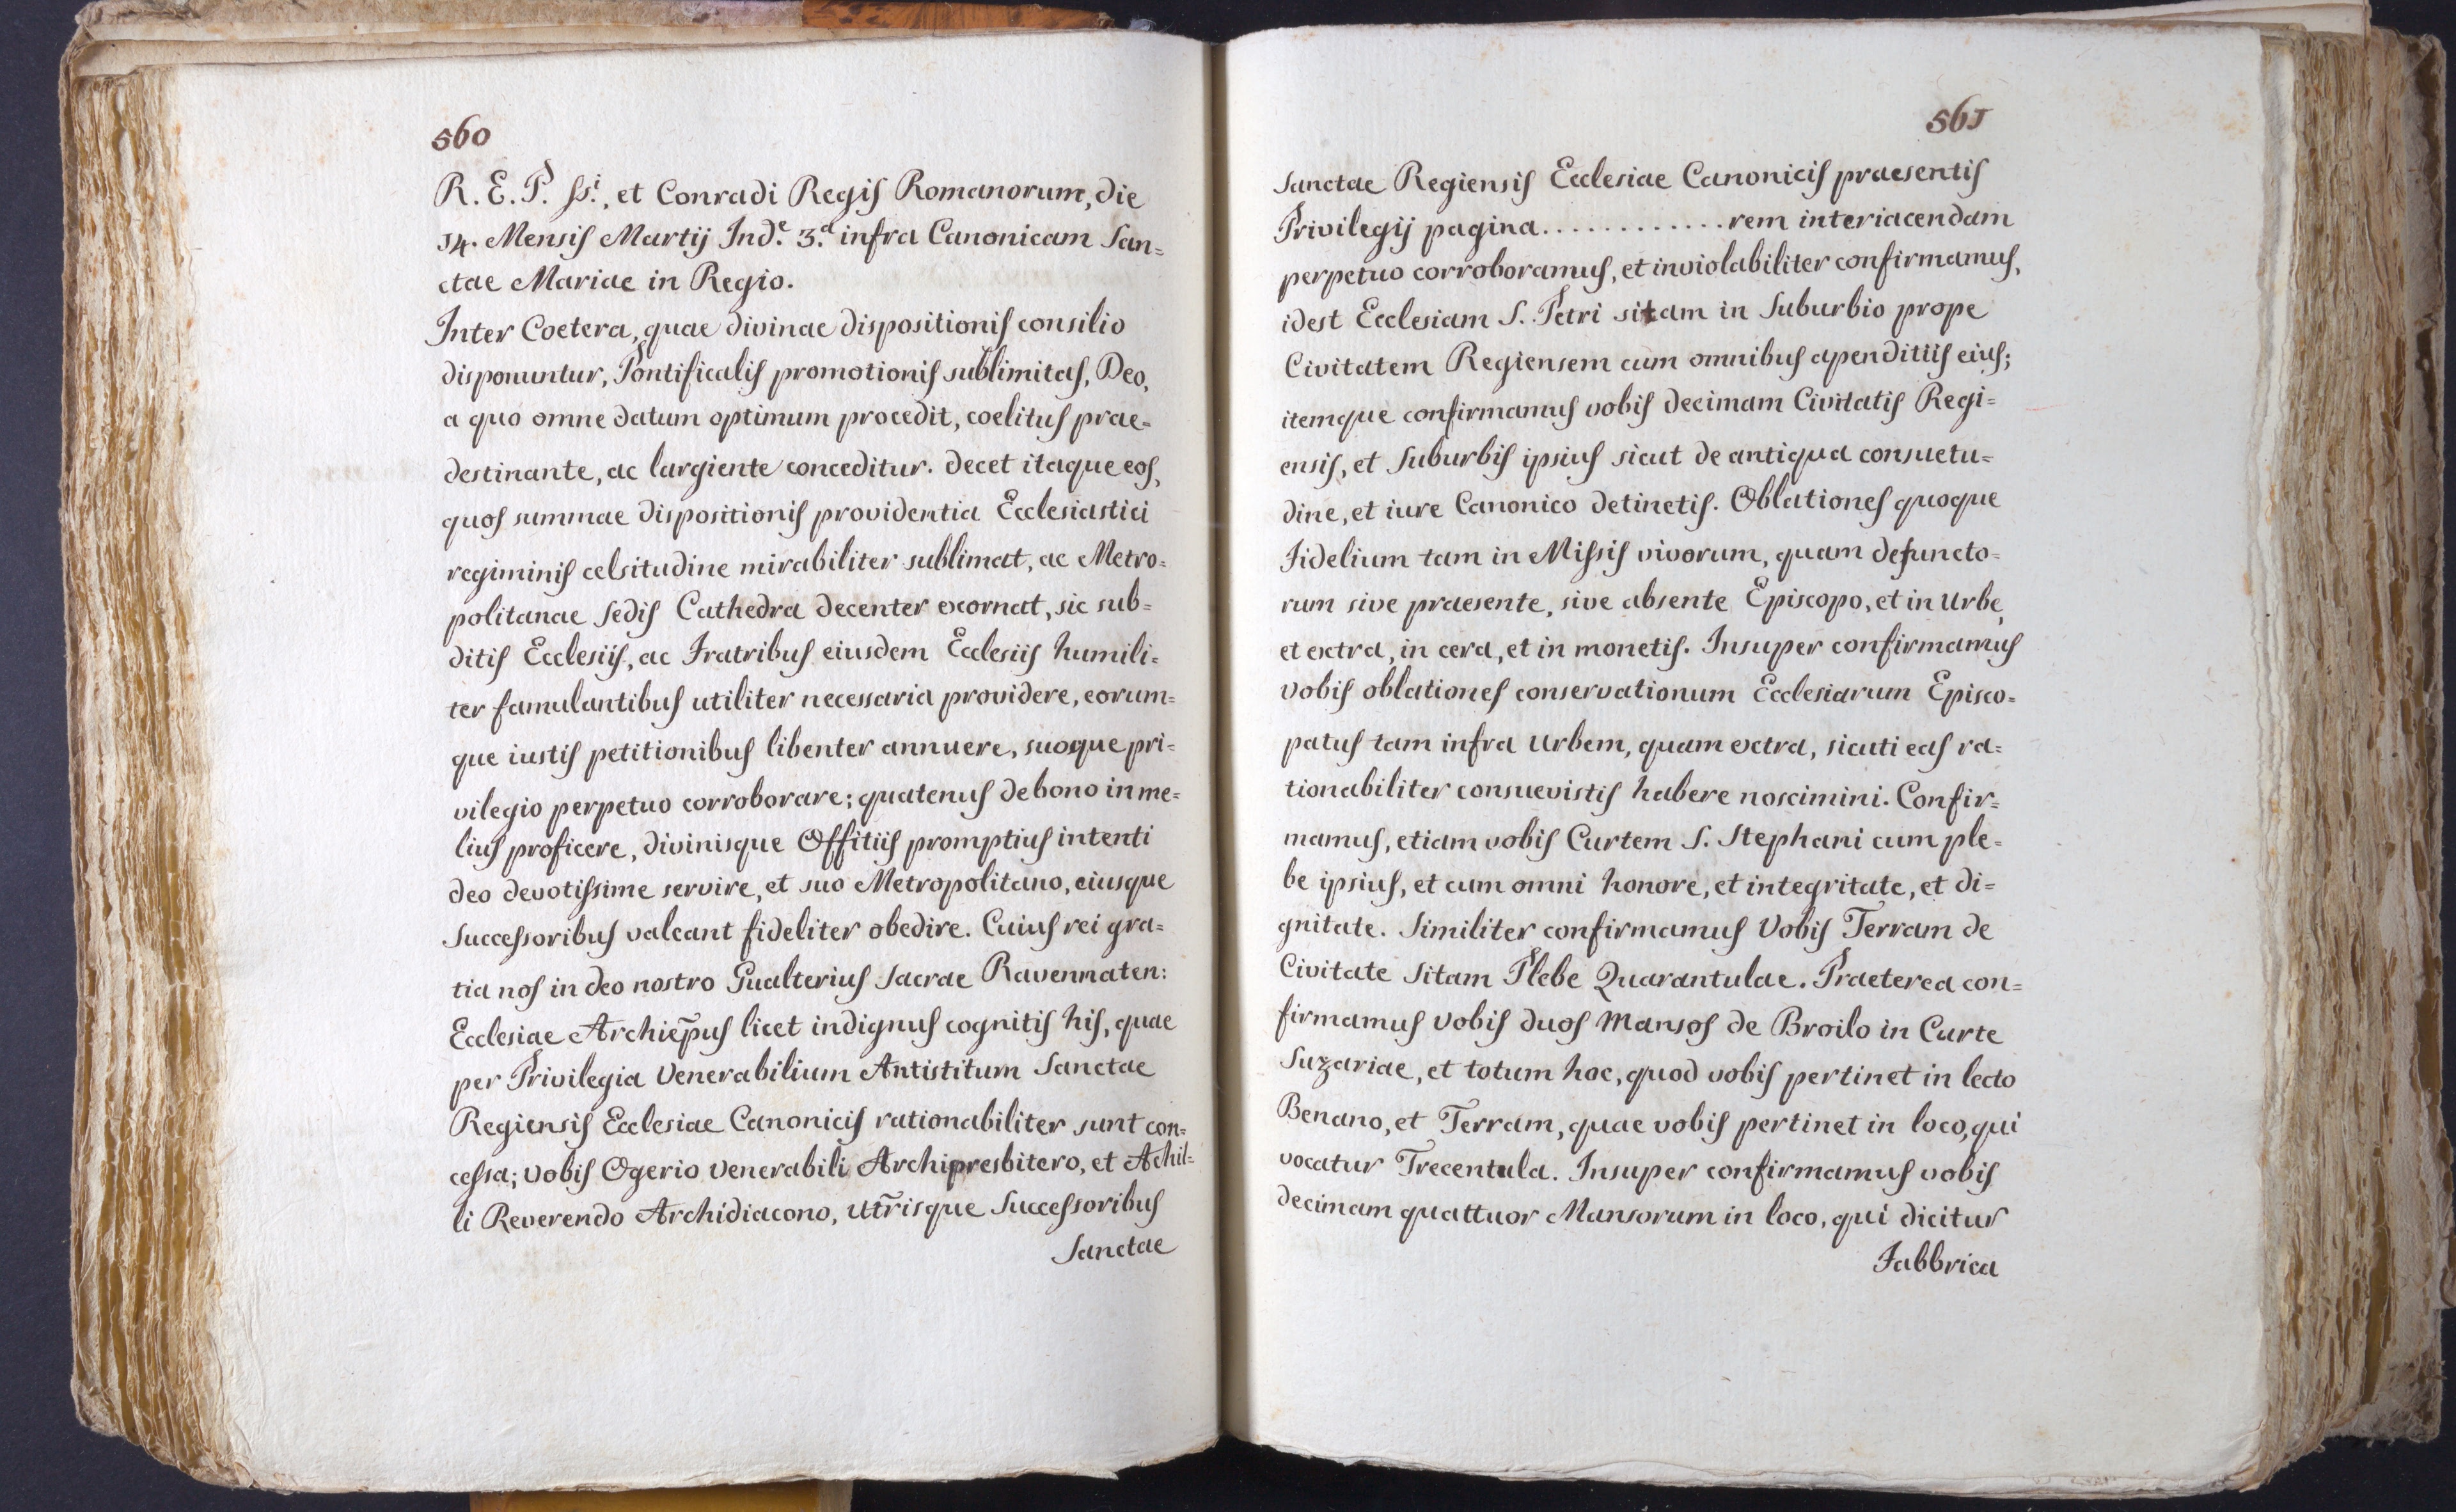 560
R. E. P. ssi., et Conradi Regis Romanorum, die
14. Mensis Martij Ind.e 3.a infra Canonicam San=
ctae Mariae in Regio.
Inter Coetera, quae divinae dispositionis consilio
disponuntur, Pontificalis promotionis sublimitas, Deo,
a quo omne datum optimum procedit, coelitus prae=
destinante, ac largiente conceditur. decet itaque eos,
quos summae dispositionis providentia Ecclesiastici
regiminis celsitudine mirabiliter sublimat, ac Metro=
politanae Sedis Cathedra decenter exornat, sic sub=
ditis Ecclesiis, ac Fratribus eiusdem Ecclesiis humili=
ter famulantibus utiliter necessaria providere, eorum=
que iustis petitionibus libenter annuere, suoque pri=
vilegio perpetuo corroborare; quatenus de bono in me=
lius proficere, divinisque Offitiis promptius intenti
deo devotissime servire, et suo Metropolitano, eiusque
Successoribus valeant fideliter obedire. Cuius rei gra=
tia nos in deo nostro Gualterius Sacrae Ravennaten:
Ecclesiae Archiep̃us licet indignus cognitis his, quae
per Privilegia Venerabilium Antistitum Sanctae
Regiensis Ecclesiae Canonicis rationabiliter sunt con=
cessa; vobis Ogerio venerabili Archipresbitero, et Achil=
li Reverendo Archidiacono, utr̃isque Successoribus
Sanctae
561
Sanctae Regiensis Ecclesiae Canonicis praesentis
Privilegij pagina.............rem interiacendam
perpetuo corroboramus, et inviolabiliter confirmamus,
idest Ecclesiam S. Petri sitam in Suburbio prope
Civitatem Regiensem cum omnibus apenditiis eius;
itemque confirmamus vobis decimam Civitatis Regi=
ensis, et Suburbis ipsius sicut de antiqua consuetu=
dine, et iure Canonico detinetis. Oblationes quoque
Fidelium tam in Missis vivorum, quam defuncto=
rum sive praesente, sive absente Episcopo, et in Urbe,
et extra, in cera, et in monetis. Insuper confirmamus
vobis oblationes conservationum Ecclesiarum Episco=
patus tam infra Urbem, quam extra, sicuti eas ra=
tionabiliter consuevistis habere noscimini. Confir=
mamus, etiam vobis Curtem S. Stephani cum ple=
be ipsius, et cum omni honore, et integritate, et di=
gnitate. Similiter confirmamus Vobis Terram de
Civitate Sitam Plebe Quarantulae. Praeterea con=
firmamus vobis duos Mansos de Broilo in Curte
Suzariae, et totum hoc, quod vobis pertinet in lecto
Benano, et Terram, quae vobis pertinet in loco, qui
vocatur Trecentula. Insuper confirmamus vobis
decimam quattuor Mansorum in loco, qui dicitur
Fabbrica